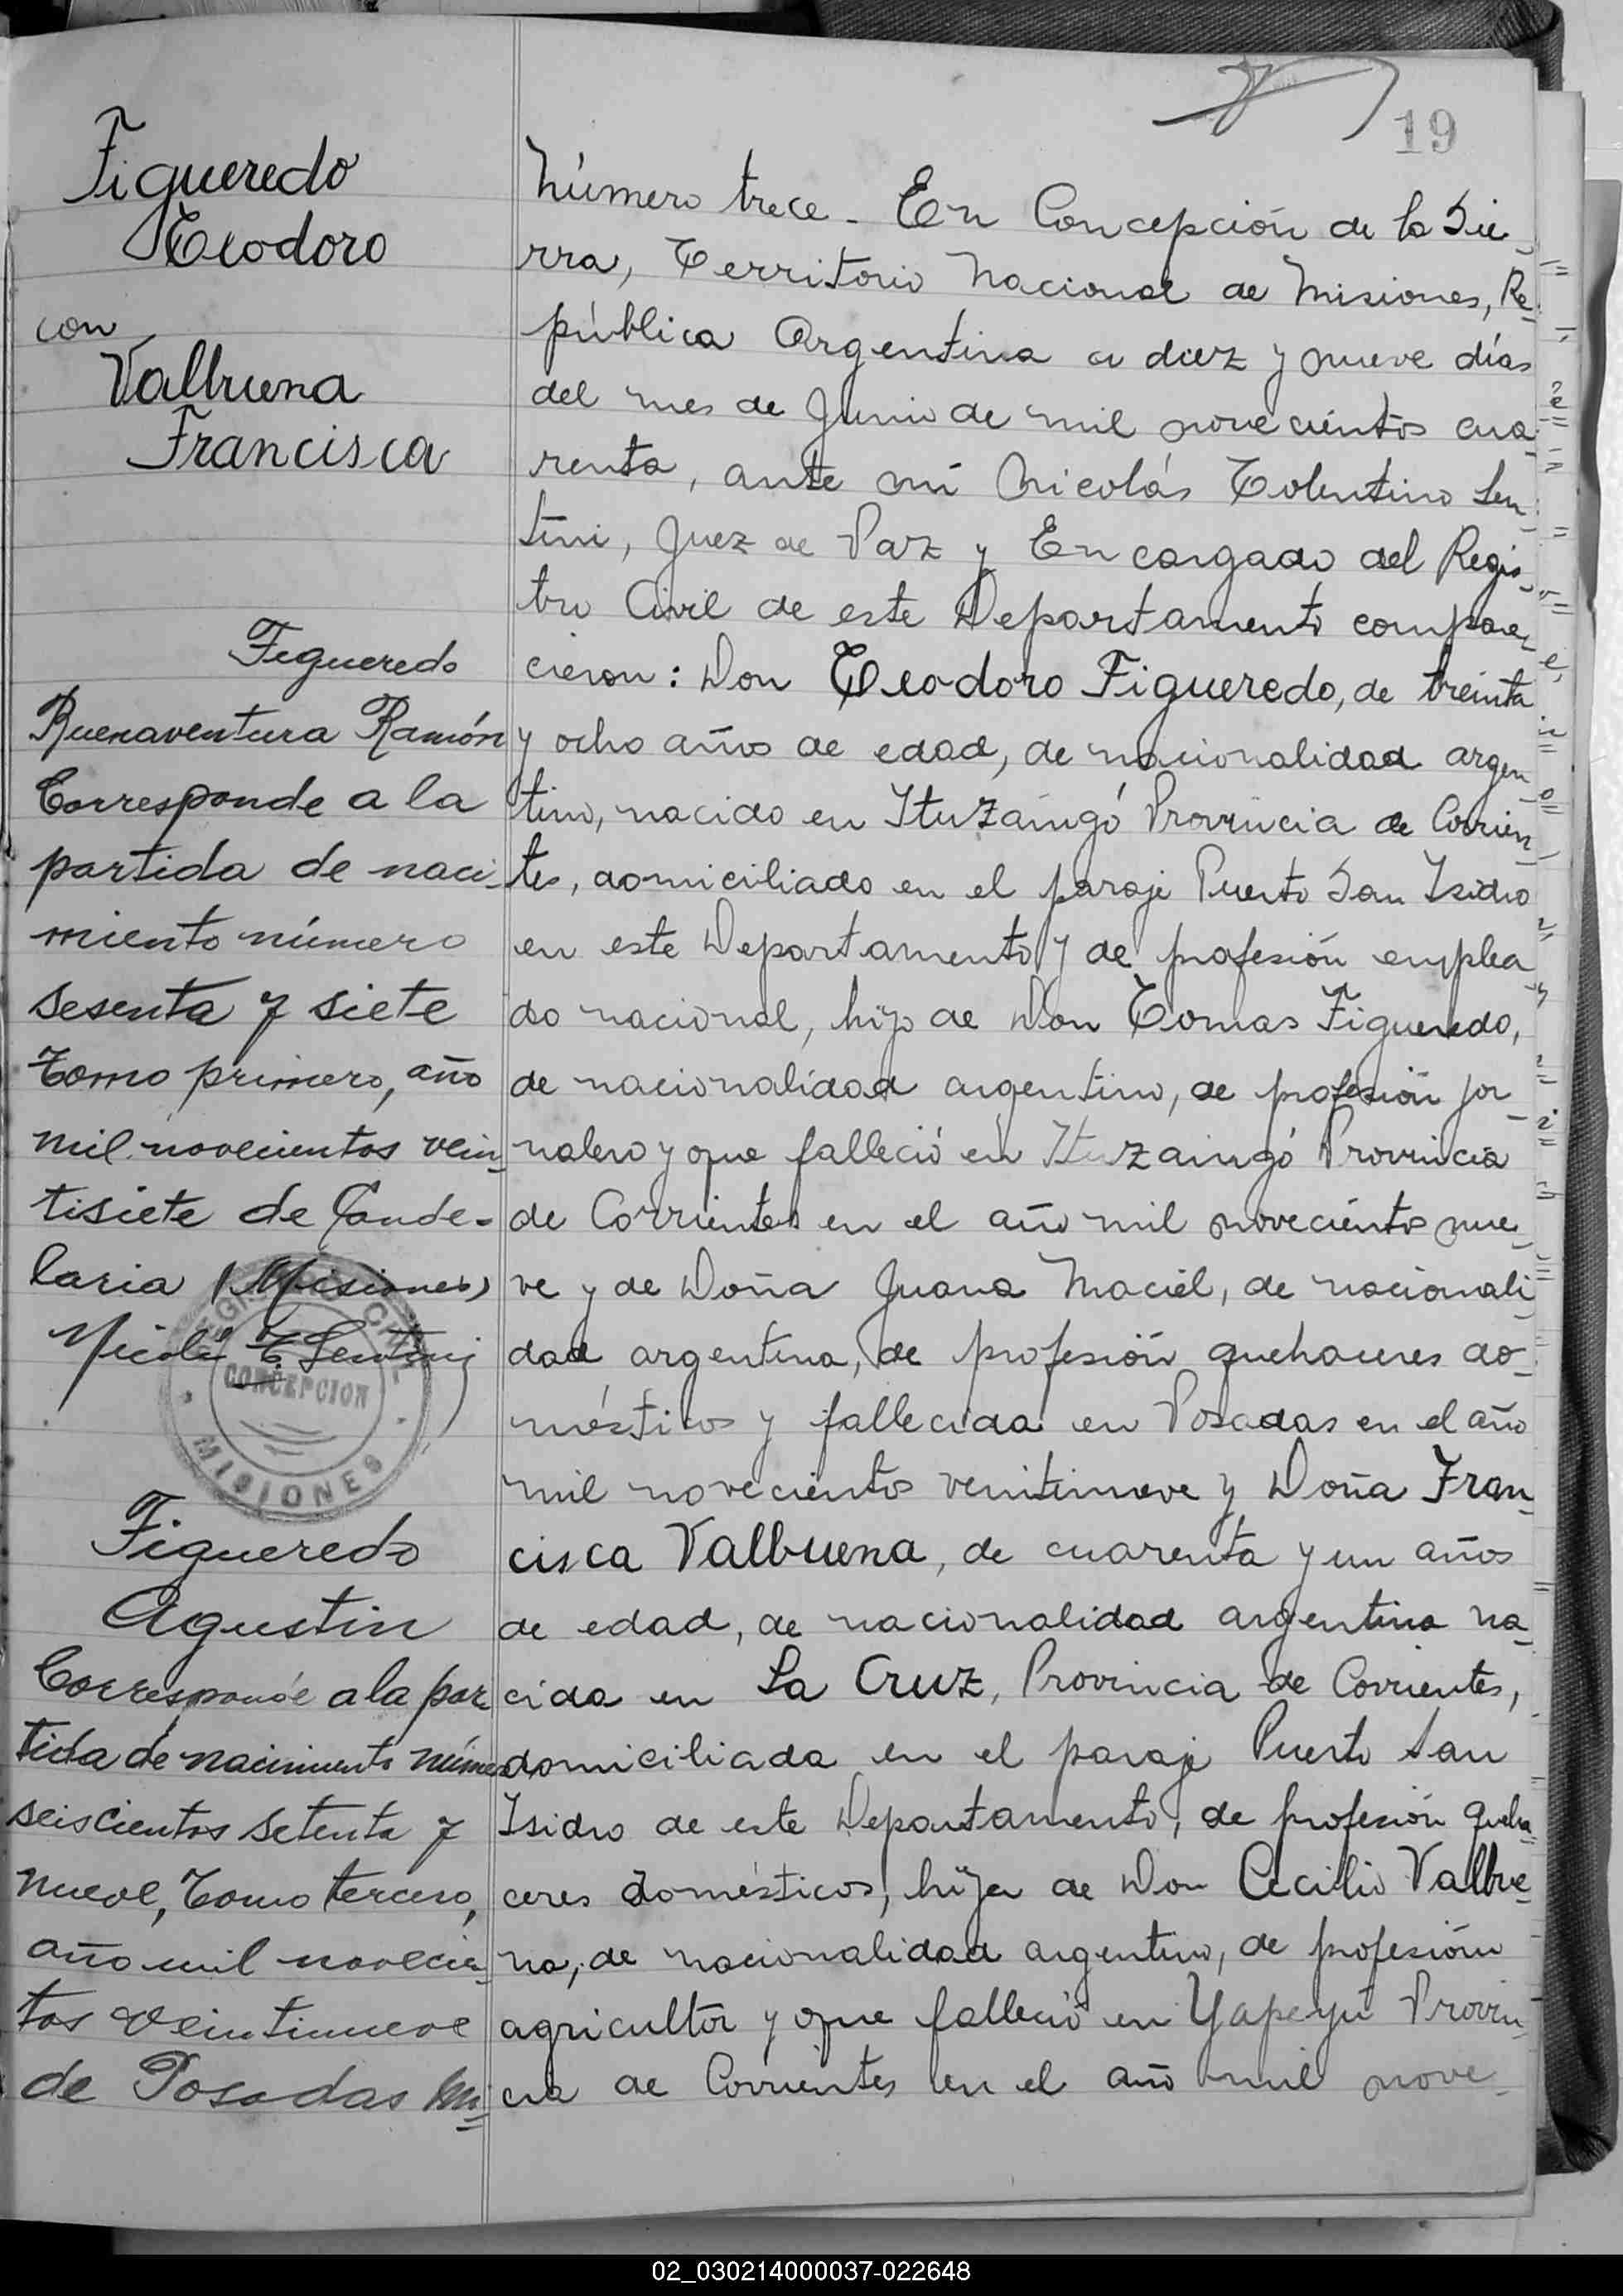 19
Figueredo
Teodoro
con
Valbuena
Francisca
Figueredo
Buenaventura Ramón
Corresponde a la
partida de naci-
miento número
sesenta y siete
Tomo primero, año
mil novecientos vein
tisiete de Cande-
laria (Misiones)
Nicolás T. Sentini
CONCEPCION
MISIONES
Figueredo
Agustin
Corresponde a la par
tida de nacimiento núme
seiscientos setenta y
nueve, Tomo tercero,
año mil novecie
tos veintinueve
de Posadas Mi
Número trece - En Concepción de la Sie-
rra, Territorio Nacional de Misiones, Re-
pública Argentina a diez y nueve días
del mes de Junio de mil novecientos cua-
renta, ante mi Nicolás Tolentino Sen-
tini, Juez de Paz y Encargado del Regis-
tro Civil de este Departamento compare-
cieron: Don Teodoro Figueredo, de treinta
y ocho años de edad, de nacionalidad argen-
tino, nacido en Ituzaingó Provincia de Corrien-
tes, domiciliado en el paraje Puerto San Isidro
en este Departamento y de profesión emplea-
do nacional, hijo de Don Tomas Figueredo,
de nacionalidad argentino, de profesión jor-
nalero y que falleció en Ituzaingó Provincia
de Corrientes en el año mil novecientos nue-
ve y de Doña Juana Maciel, de nacionali-
dad argentina, de profesión quehaceres do-
mésticos y fallecida en Posadas en el año
mil novecientos veintinueve y Doña Fran-
cisca Valbuena, de cuarenta y un años
de edad, de nacionalidad argentina na-
cida en La Cruz, Provincia de Corrientes,
domiciliada en el paraje Puerto San
Isidro de este Departamento, de profesión queha-
ceres domésticos, hija de Don Cecilio Valbue-
na, de nacionalidad argentino, de profesión
agricultor y que falleció en Yapeyú Provin-
cia de Corrientes en el año mil nove-
02_030214000037-022648